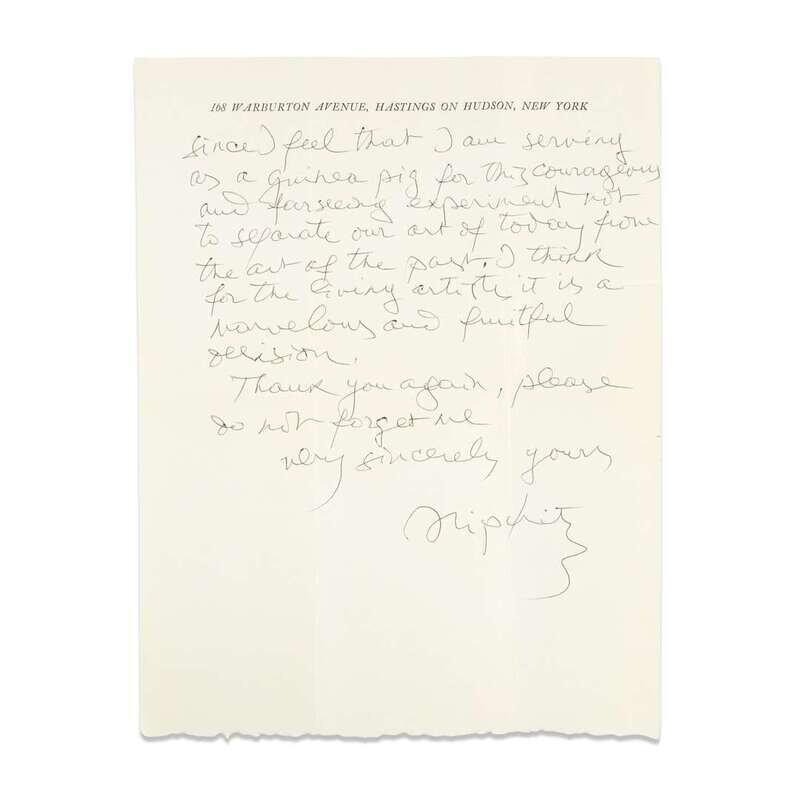 168 WARBURTON AVENUE, HASTINGS ON HUDSON, NEW YORK
since I feel that I am serving
as a guinea pig for this courageous
and farseeing experiment not
to separate our art of today from
the art of the past. I think
for the living artists it is a
marvelous and fruitful
decision.
Thank you again, please
do not forget me
very sincerely yours
JLipchitz